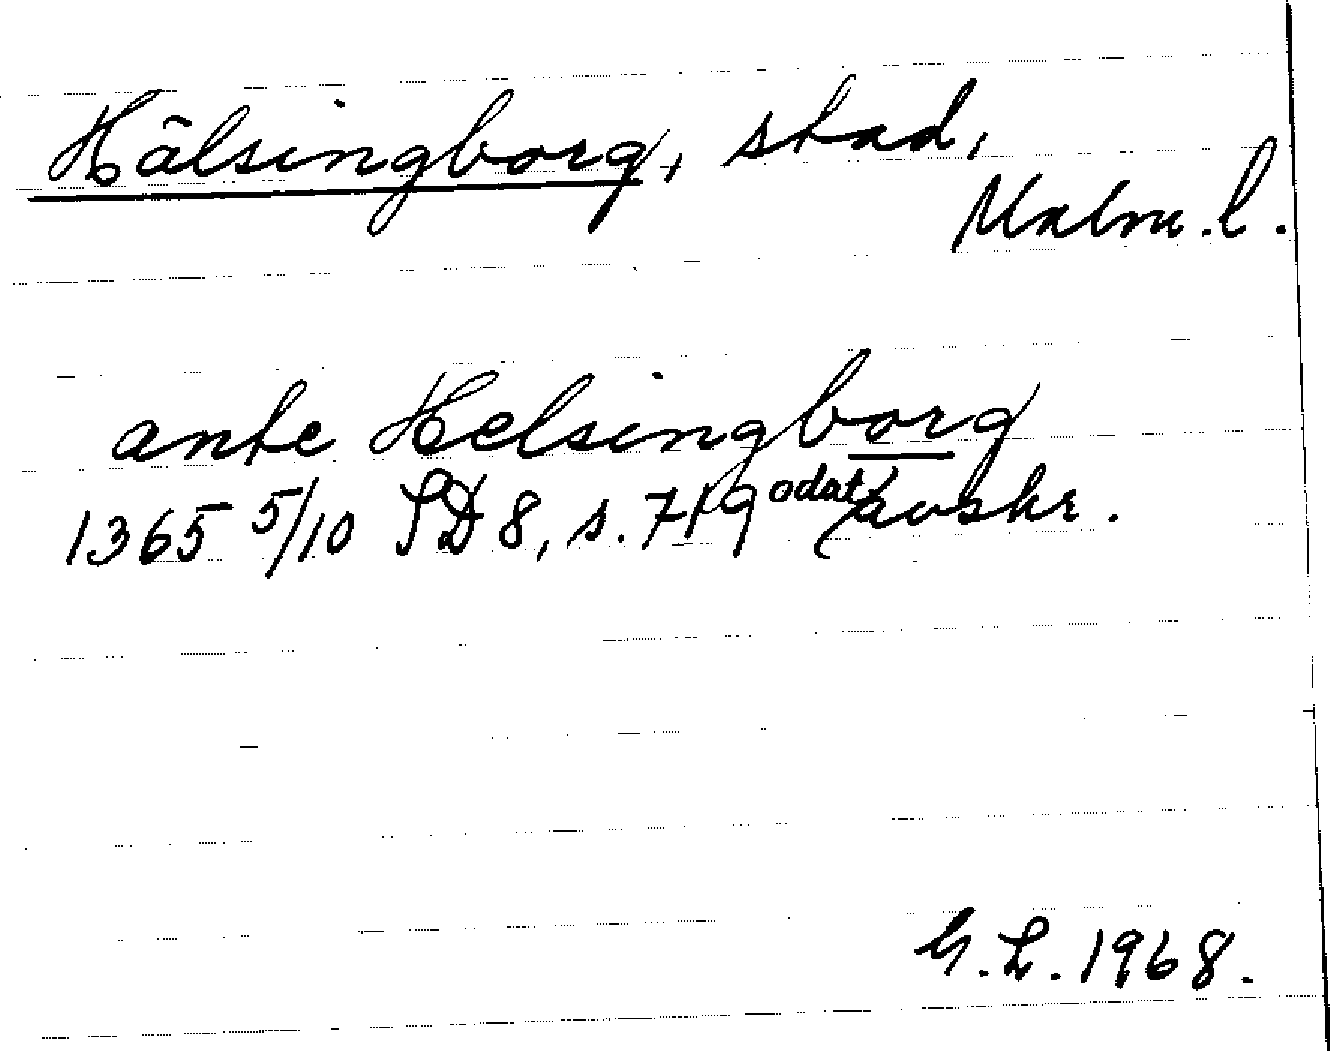 Hälsingborg, stad,
Malm. l.
ante Helsingborg
1365 5/10 SD 8, s. 719 odat avskr.
G.L. 1968.